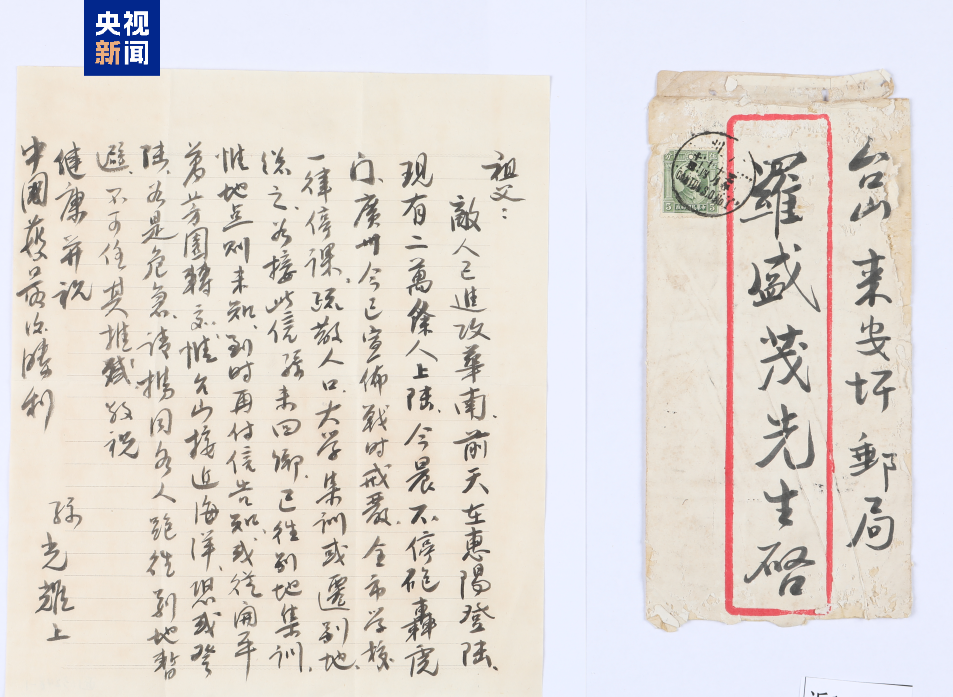 央视
新闻
祖父：
敵人已進攻華南，前天在惠陽登陸，
現有二萬餘人上陸，今晨不停砲轟虎
门，廣州今已宣佈戰时戒嚴，全市学校
一律停課，疏散人口，大学集訓或遷别地，
總之，如接此信孫未回鄉，已往别地集訓，
惟地点则未知，到时再付信告知，或從開平
芳園轉交，惟台山接近海洋，恐或登
陸，如是危急，請携同家人跑往别地暫
避，不可任其摧殘，敬祝
健康并祝
中國最後勝利
孫光耀上
台山来安圩郵局
羅盛茂先生啓